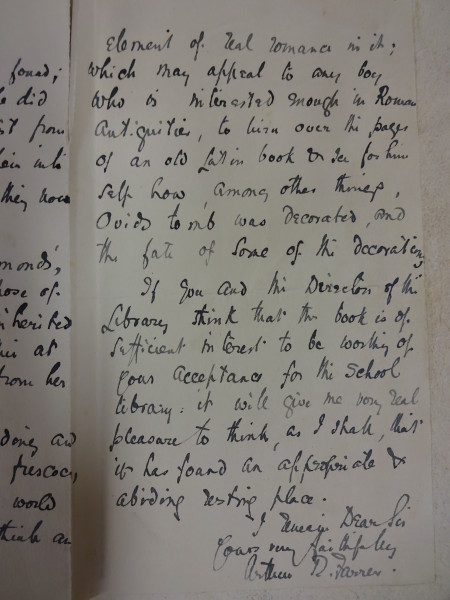 found;
did
from
into
they now
hose of
inherited
at
from her
frescoes,
world
think an
Element of real romance in it;
which may appeal to any boy
who is interested enough in Roman
Antiquities, to turn over the pages
of an old Latin book & see for him
self how, among other things,
Ovids tomb was decorated, and
the fate of some of the decorations
If you and the Directors of the
Library think that the book is of
sufficient interest to be worthy of
your acceptance for the School
library: it will give me very real
pleasure to think, as I shall, that
it has found an appropriate &
abiding resting place.
I remain Dear Sir
Yours very faithfully
Arthur D. Farrer.